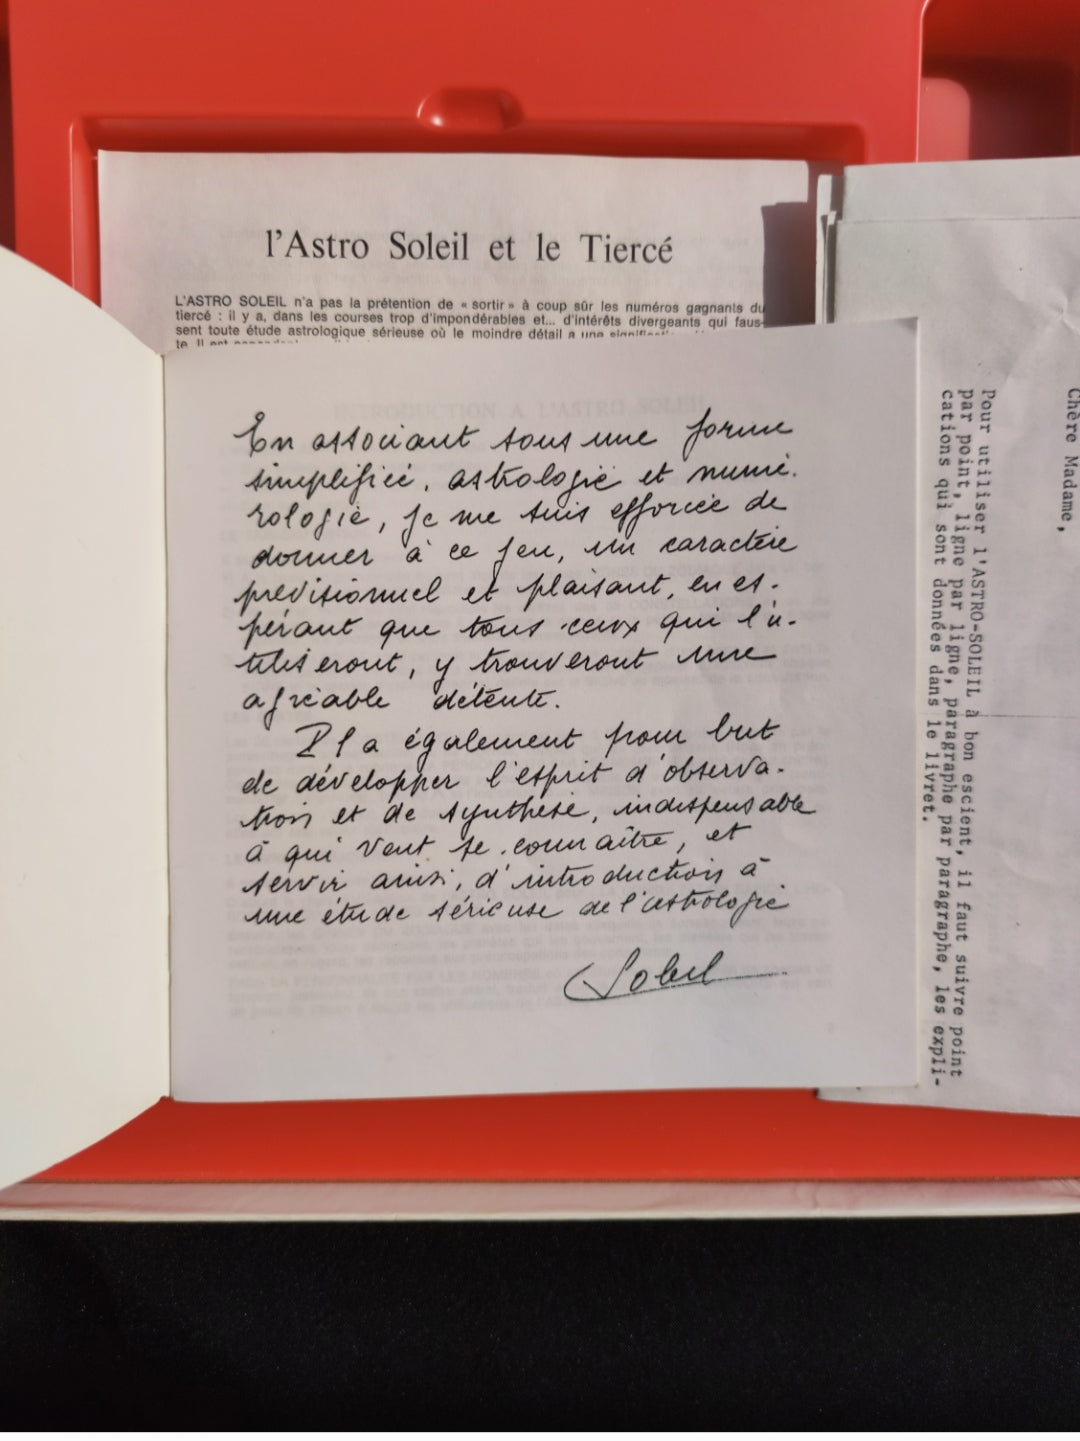 l'Astro Soleil et le Tiercé
L'ASTRO SOLEIL n'a pas la prétention de « sortir » à coup sûr les numéros gagnants du
tiercé : il y a, dans les courses trop d'impondérables et... d'intérêts divergeants qui faus-
sent toute étude astrologique sérieuse où le moindre détail a une
te. Il est
En associant sous une forme
simplifiée, astrologie et numé.
rologie, je me suis efforcée de
donner à ce jeu, un caractère
prévisionnel et plaisant, en es-
pérant que tous ceux qui l'u-
tiliseront, y trouveront une
agréable détente.
Il a également pour but
de développer l'esprit d'observa-
tion et de synthèse, indispensable
à qui veut se connaître, et
servir ainsi, d'introduction à
une étude sérieuse de l'astrologie
Soleil
Chère Madame,
Pour utiliser l'ASTRO-SOLEIL à bon escient, il faut suivre point
par point, ligne par ligne, paragraphe par paragraphe, les expli-
cations qui sont données dans le livret.